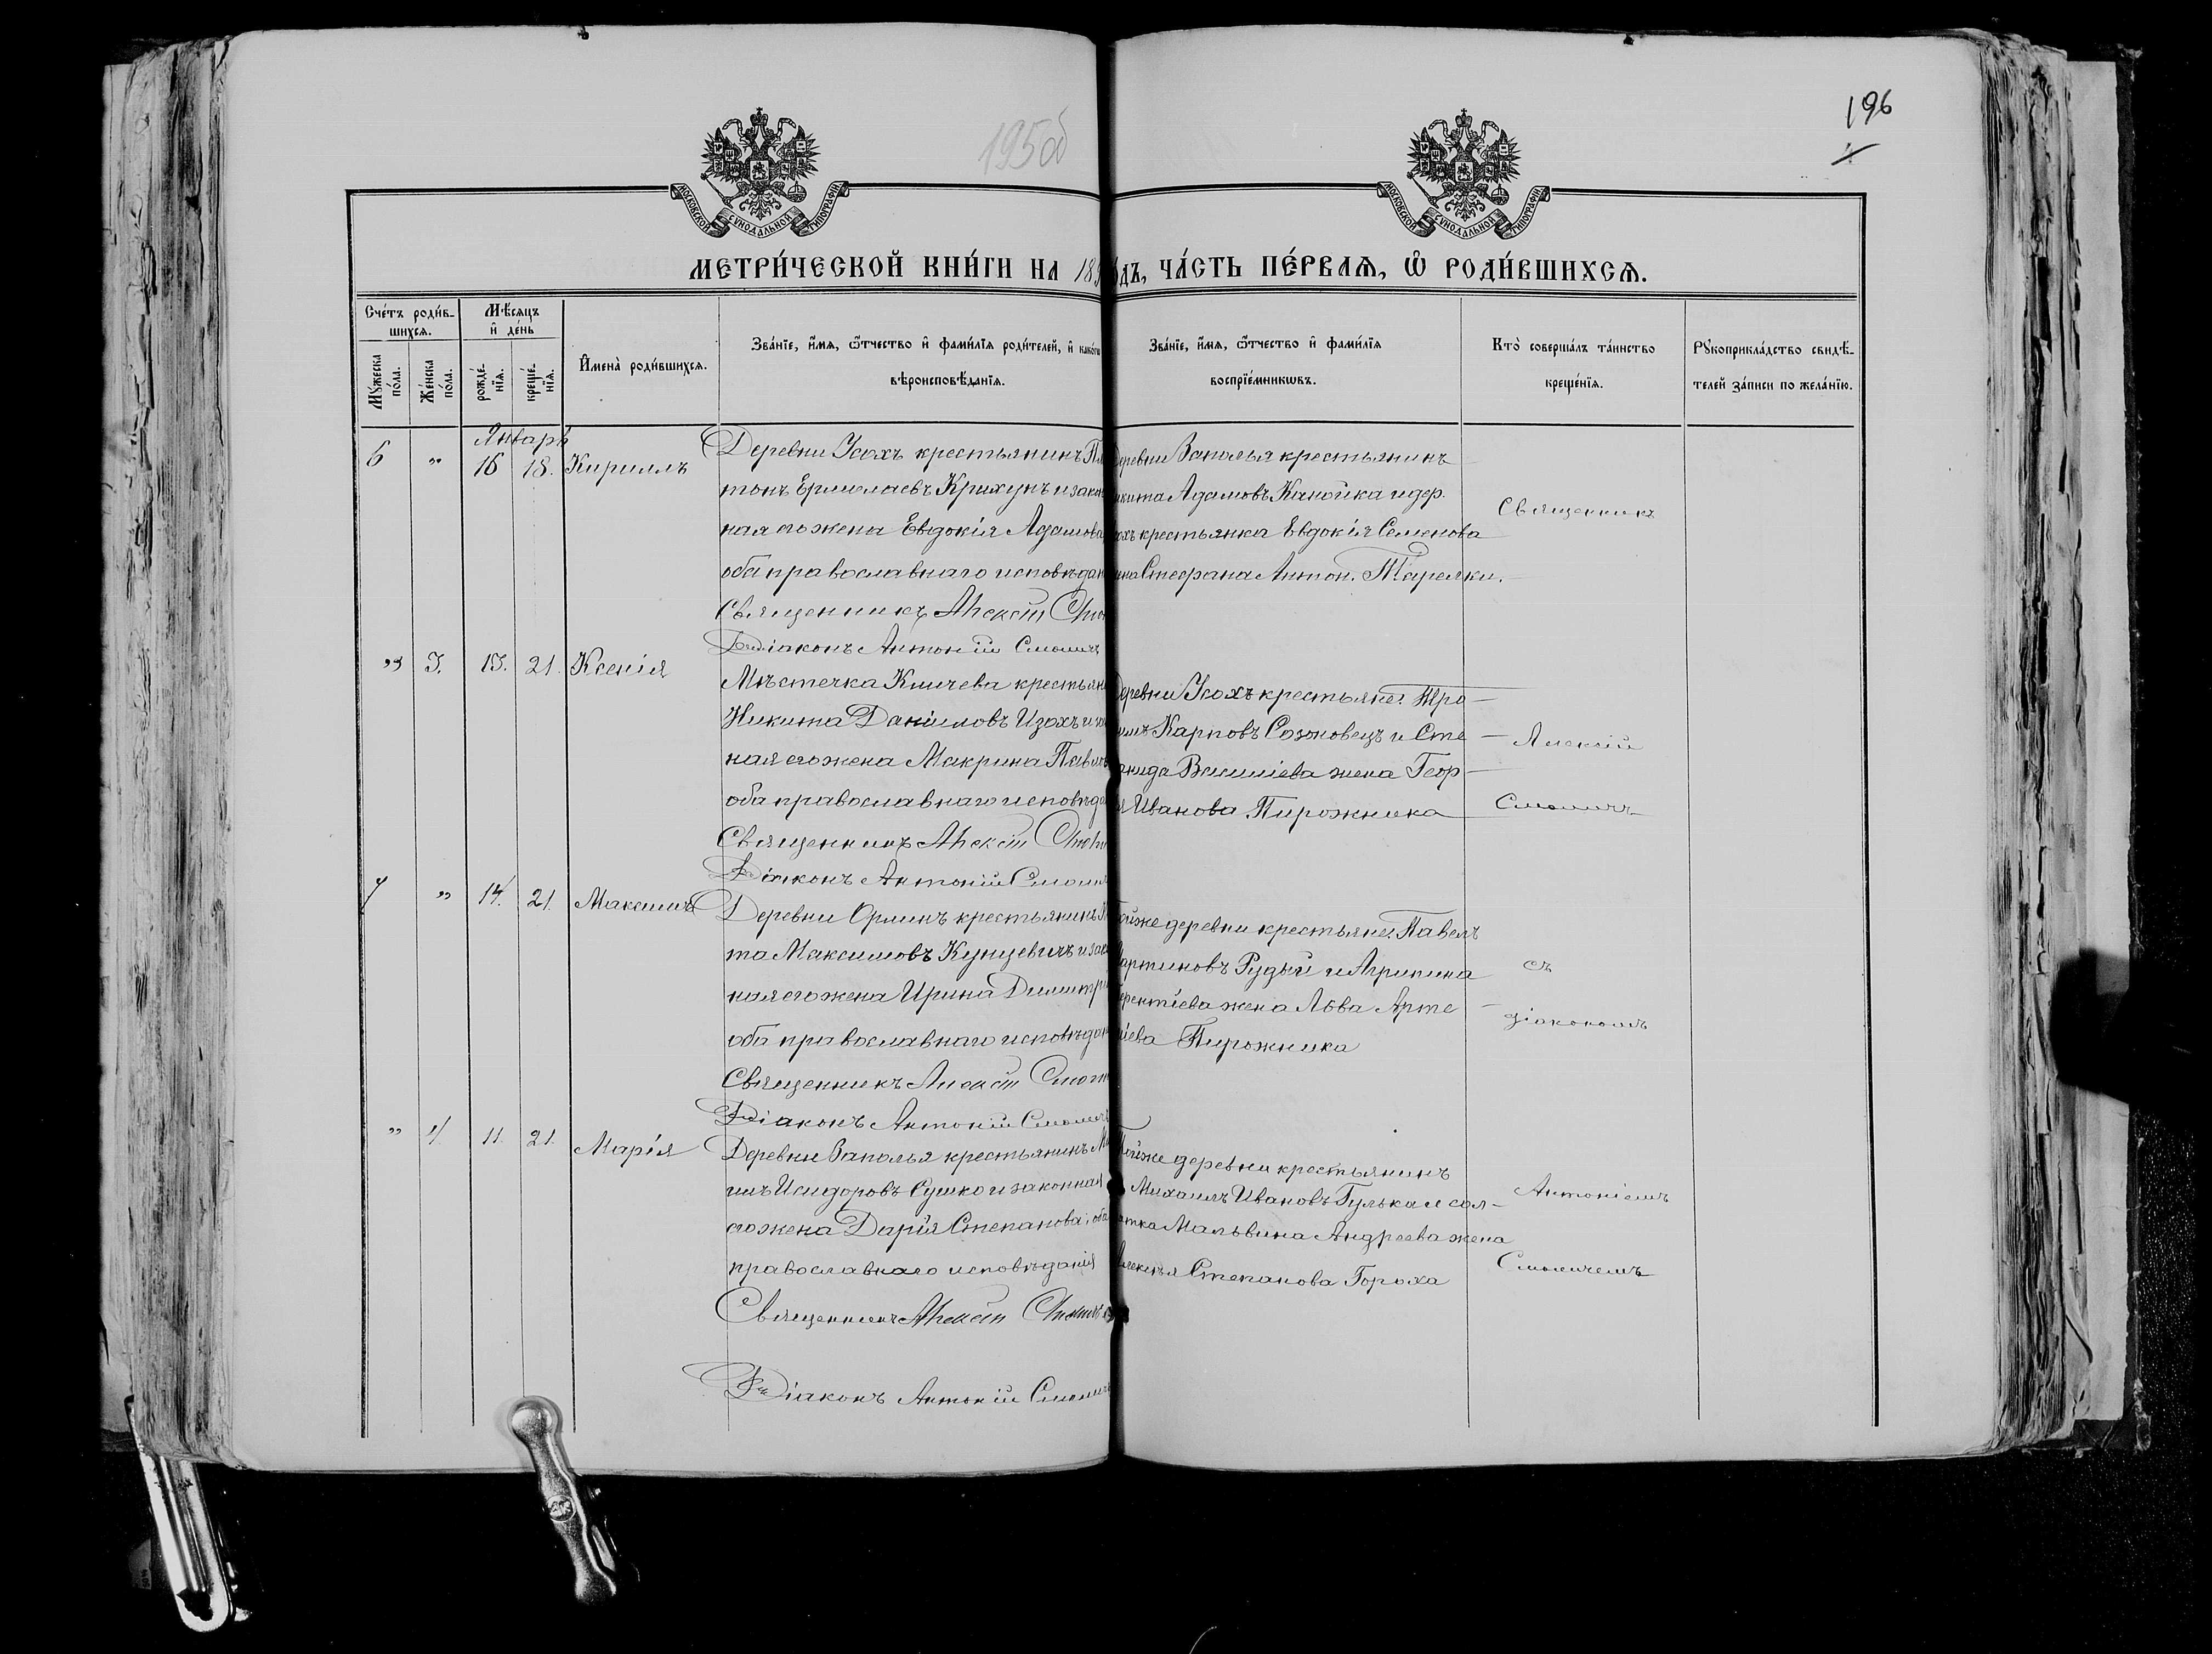 195об
196
МОСКОВСКОЙ СѴНОДАЛЬНОЙ ТИПОГРАФІИ
МОСКОВСКОЙ СѴНОДАЛЬНОЙ ТИПОГРАФІИ
МЕТРИ́ЧЕСКОЙ КНИ́ГИ НА 189 ДЪ, ЧА́СТЬ ПЕ́РВАЯ, Ѡ РОДИ́ВШИХСѦ.
Сче́тъ роди́в-
шихсѧ.
Мѣ́сѧцъ
и҆ де́нь
Мꙋ́жеска
по́ла.
Же́нска
по́ла.
рожде́-
нїѧ.
креще́-
нїѧ.
И҆мена̀ роди́вшихсѧ.
Зва́нїе, и҆́мѧ, ѻ҆́тчество и҆ фами́лїѧ роди́телей, и҆ како́гѡ
вѣроисповѣ́данїѧ.
Зва́нїе, и҆́мѧ, ѻ҆́тчество и҆ фами́лїѧ
воспрїе́мникѡвъ.
Кто̀ соверша́лъ та́инство
креще́нїѧ.
Рꙋкоприкла́дство свидѣ́-
телей за́писи по жела́нїю.
Январь
6 „ 16 18. Кириллъ
Деревни Усохъ крестьянинъ Пла
тонъ Ермолаевъ Крихунъ и закон
ная его жена Евдокія Адамова
оба православнаго исповѣдан
Священникъ Алексѣй
Діаконъ Антоній Смолич
деревни Заполья крестьянинъ
икита Адамовъ Канойка и дер.
охъ крестьянка Евдокія Семенова
ена Стефана Антон. Тарелки.
Священникъ
„ 3. 13. 21. Ксенія
Мѣстечка Кличева крестьян
Никита Даниловъ Изохъ и за
ная его жена Макрина Павлов
оба православнаго исповѣда
Священникъ Алексѣй
Діаконъ Антоній Смолич
деревни Усохъ крестьяне: Тро
имъ Карповъ Созновецъ и Сте
анида Василіева жена Геор
я Иванова Пирожника
Алексѣй
Смоличъ
7 „ 14. 21. Максимъ
Деревни Орлинъ крестьянинъ
та Максимовъ Кунцевичъ и зак
ная его жена Ирина Димитрі
оба православнаго исповѣдан
Священникъ Алексѣй
Діаконъ Антоній Смолич
Тойже деревни крестьяне: Павелъ
Мартиновъ Рудый и Агрипина
Терентіева жена Льва Арте
іева Пирожника
съ
діакономъ
„ 4 11. 21. Марія
Деревни Заполья крестьянинъ
илъ Исидоровъ Сушко и законная
его жена Дарія Степанова; оба
православнаго исповѣданія
Священникъ Алексѣй
Діаконъ Антоній Смолич
Тойже деревни крестьянинъ
Михаилъ Ивановъ Гулька и сол-
атка Мальвина Андреева жена
Алексѣя Степанова Гороха
Антоніемъ
Смоличемъ